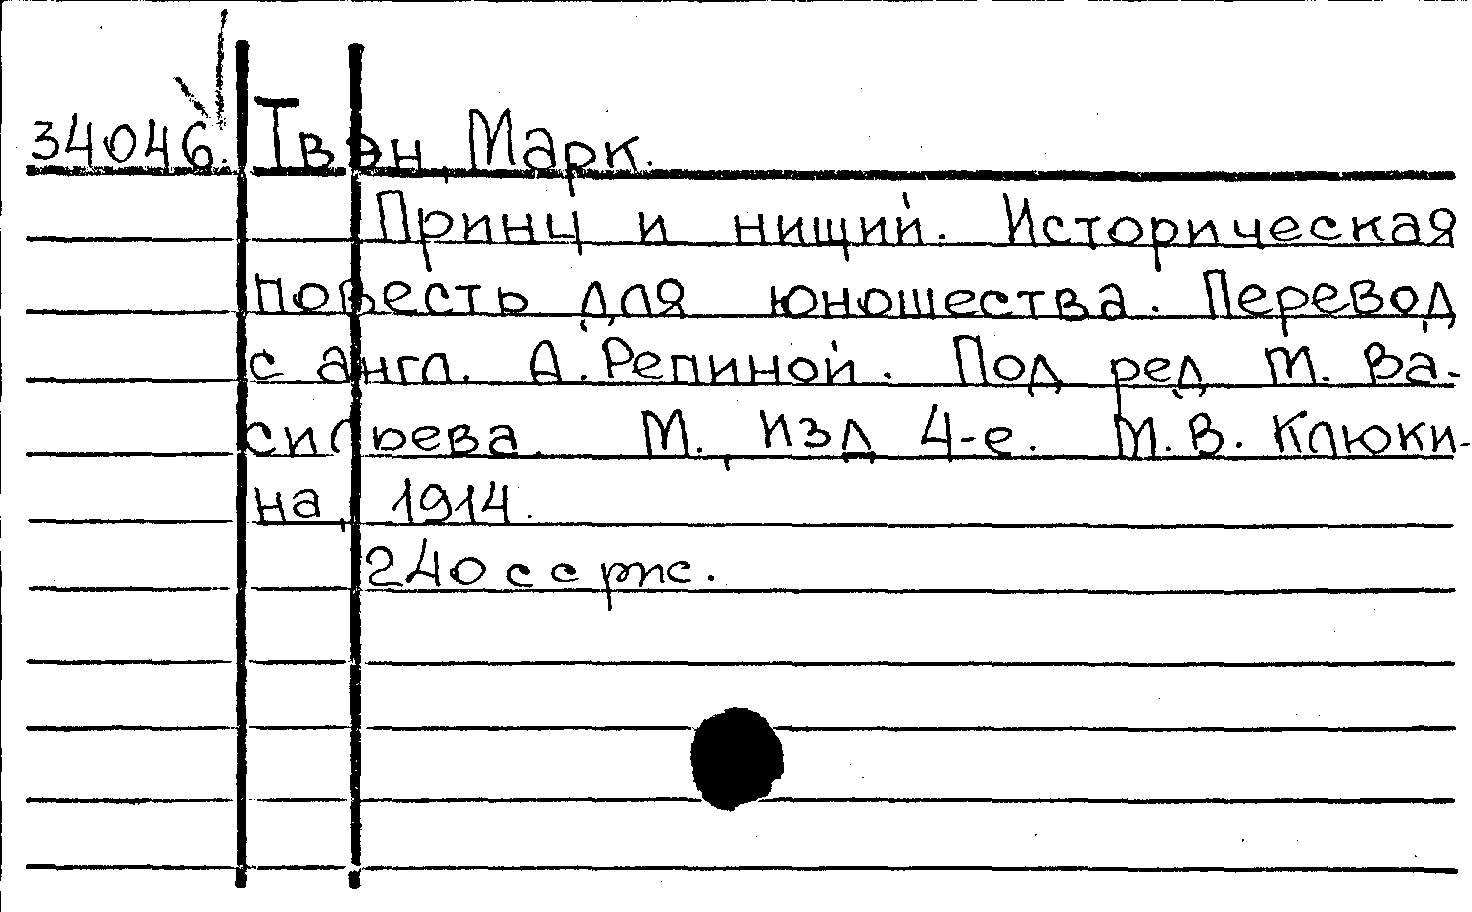 34046. Твэн, Марк.
Принц и нищий. Историческая
повесть для юношества. Перевод
с англ. А. Репиной. Под ред М. Ва-
сильева. М., Изд 4-е. М.В. Клюки-
на, 1914.
240 с с рис.